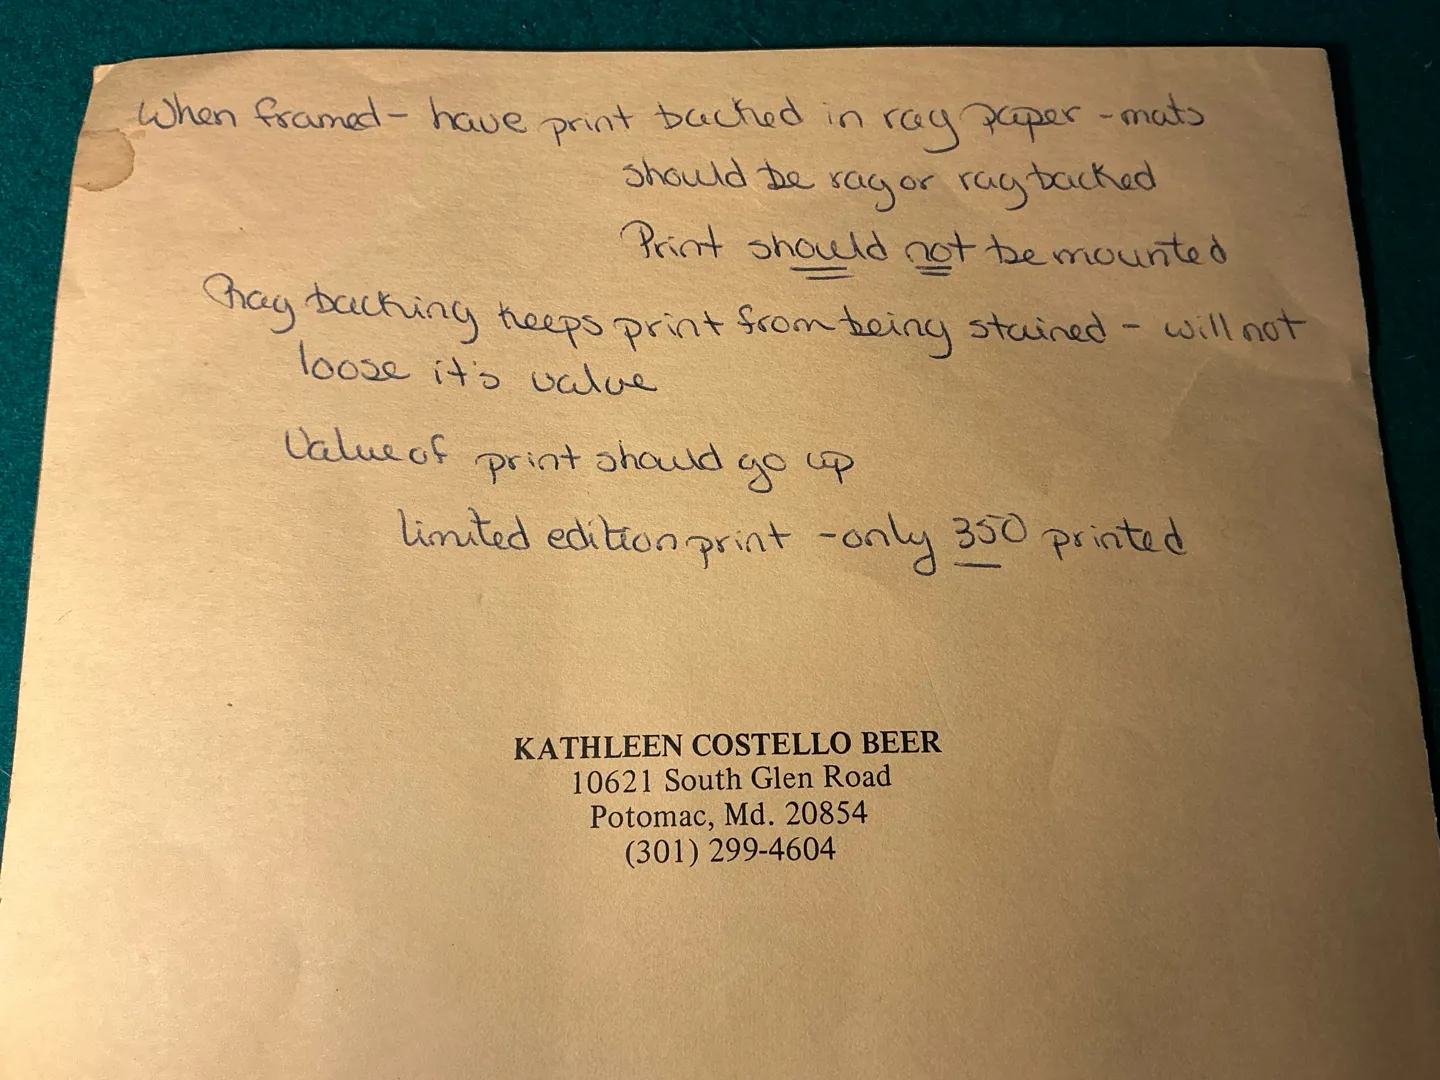 When framed - have print backed in rag paper - mats
should be rag or rag backed
Print should not be mounted
Rag backing keeps print from being stained - will not
loose it's value
Value of print should go up
limited edition print - only 350 printed
KATHLEEN COSTELLO BEER
10621 South Glen Road
Potomac, Md. 20854
(301) 299-4604